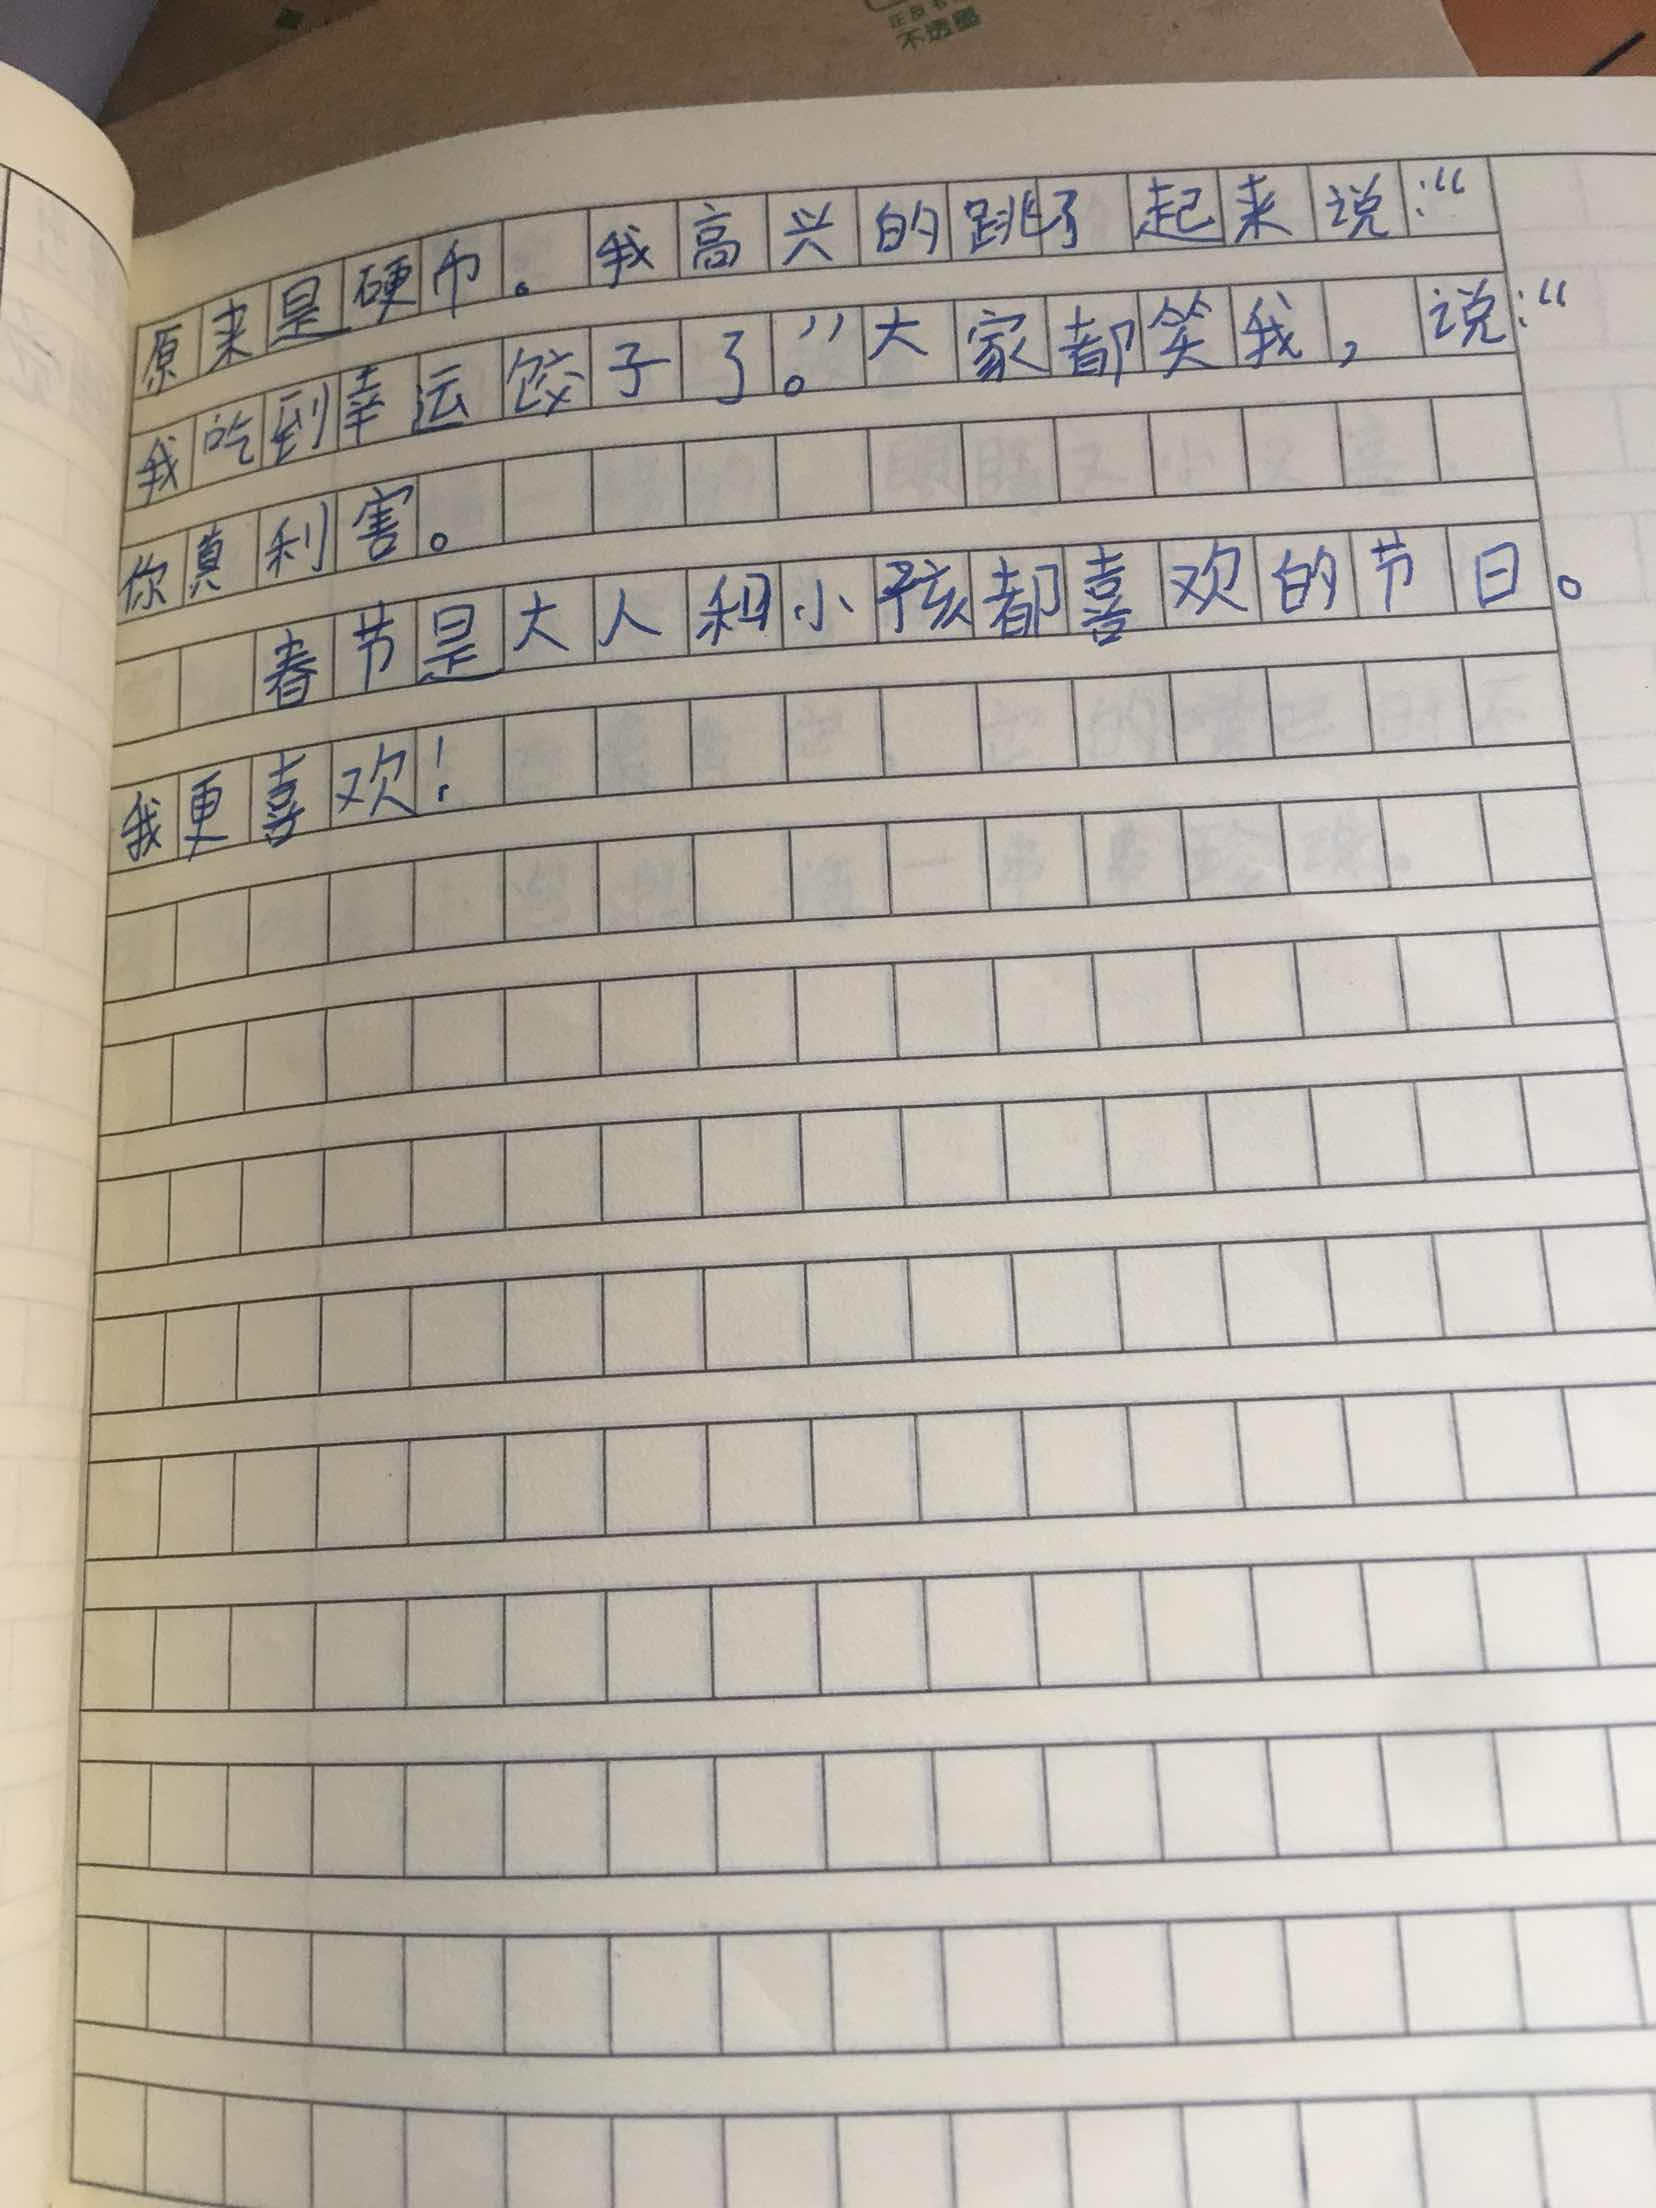 不透墨
原来是硬币。我高兴的跳了起来说:“
我吃到幸运饺子了。”大家都笑我,说:“
你真利害。
春节是大人和小孩都喜欢的节日。
我更喜欢!